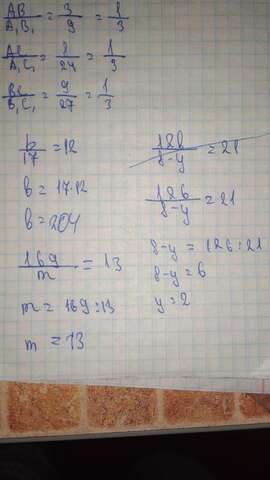 AB/A₁B₁ = 3/9 = 1/3
AC/A₁C₁ = 8/24 = 1/3
BC/B₁C₁ = 9/27 = 1/3
b/17 = 12
b = 17·12
b = 204
169/m = 13
m = 169:13
m = 13
126/8-y = 21
8-y = 126:21
8-y = 6
y = 2